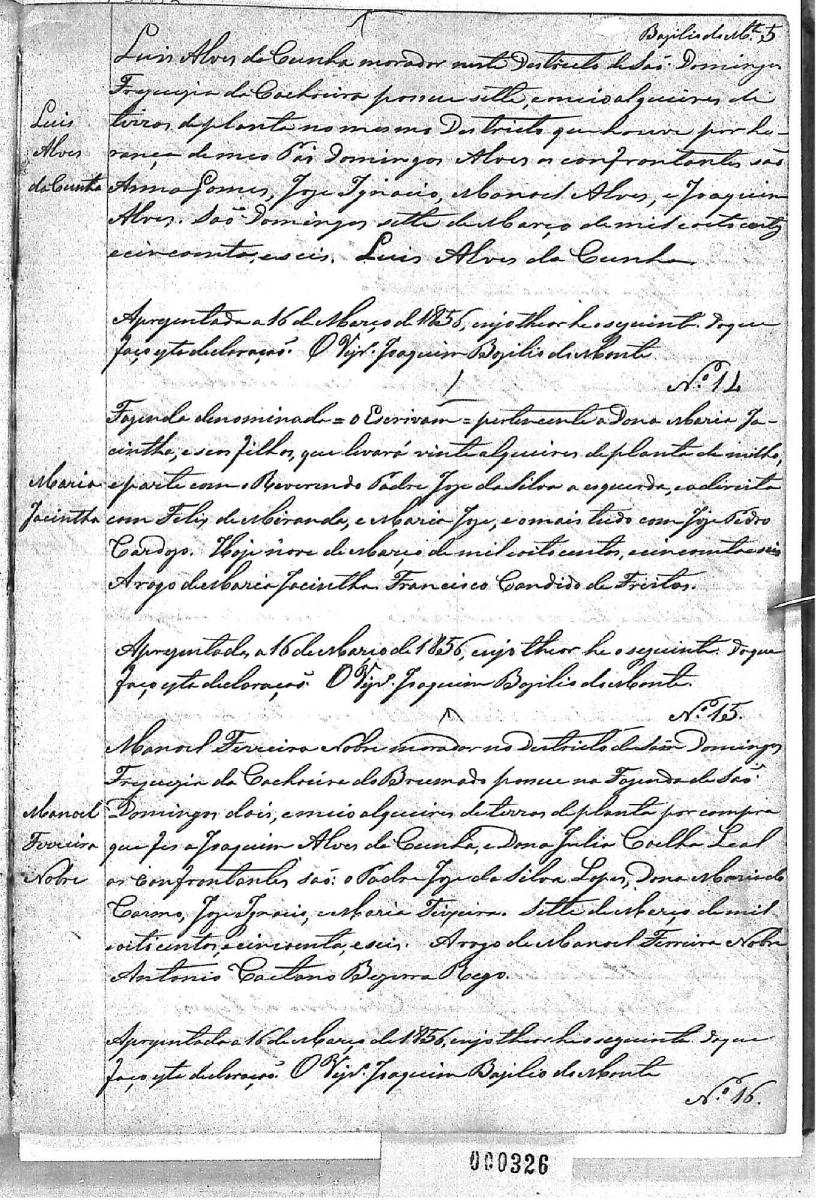 Bazilio do Mte. 5
Luis Alves da Cunha morador neste Destricto de Saõ Domingos
Freguezia da Cachoeira possue sette, e meio alqueires de
terras de planta no mesmo Destricto que houve por he-
rança de meo Pai Domingos Alves os confrontantes saõ
Anna Gomes, Joze Ignacio, Manoel Alves, e Joaquim
Alves. Saõ Domingos sette de Março de mil oito centos
e cincoenta, e seis. Luis Alves da Cunha
Luis
Alves
da Cunha
Aprezentada a 16 de Março de 1856, cujo theor he o seguinte. do que
faço esta declaraçaõ. O Vigr.º Joaquim Bazilio do Monte
N.º 14
Fazenda denominada = o Escrivam = pertencente a Dona Maria Ja-
cintha, e seos filhos, que levará vinte alqueires de planta de milho,
e parte com o Reverendo Padre Joze da Silva a esquerda, e a direita
com Felis de Miranda, e Maria Joze, e o mais tudo com Joze Pedro
Cardozo. Hoje nove de Março de mil oito centos, e cincoenta e seis
Arogo de Maria Jacintha. Francisco Candido de Freitas.
Maria
Jacintha
Aprezentada a 16 de Março de 1856, cujo theor he o seguinte. do que
faço esta declaraçaõ. O Vigr.º Joaquim Bazilio do Monte.
N.º 15.
Manoel Ferreira Nobre morador no Destricto de Saõ Domingos
Freguezia da Cachoeira do Brumado possue na Fazenda de Saõ
Domingos dois, e meio alqueires de terras de planta por compra
que fis a Joaquim Alves da Cunha, e Dona Julia Coelha Leal
os confrontantes saõ: o Padre Joze da Silva Lopes, Dona Maria do
Carmo, Joze Ignacio, e Maria Teixeira. Sette de Março de mil
oito centos, e cincoenta, e seis. Arogo de Manoel Ferreira Nobre
Antonio Caetano Bezerra Rego.
Manoel
Ferreira
Nobre
Aprezentada a 16 de Março de 1856, cujo theor he o seguinte. do que
faço esta declaraçaõ. O Vigr.º Joaquim Bazilio do Monte
N.º 16.
000326